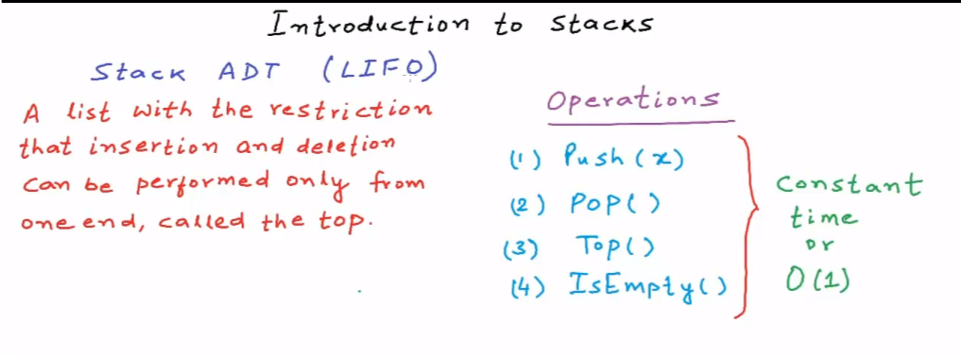 Introduction to stacks
Stack ADT (LIFO)
A list with the restriction
that insertion and deletion
can be performed only from
one end, called the top.
Operations
(1) Push(x)
(2) Pop()
(3) Top()
(4) IsEmpty()
Constant
time
or
O(1)